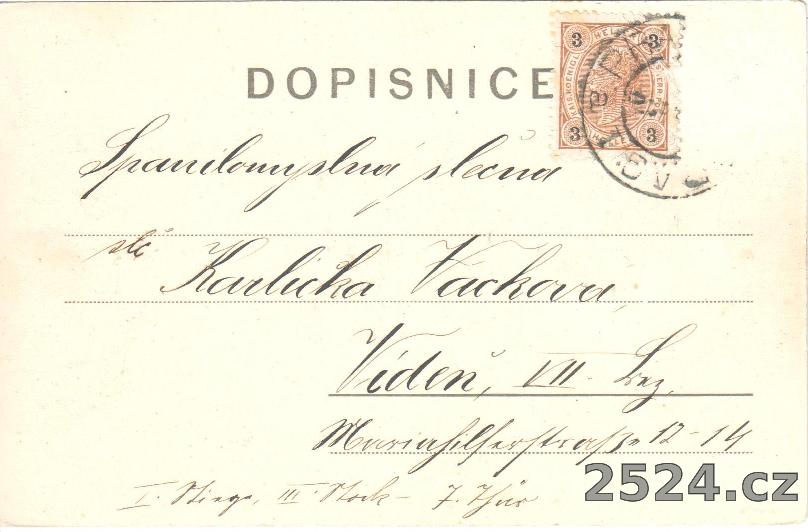 DOPISNICE
3 3
3 3
Spanilomyslná slečna
slč. Karlička Vačkova,
Vídeň, VII. Bez.
Mariahilferstraße 12-14
I. Stiege, III. Stock - 7. Thür
2524.cz